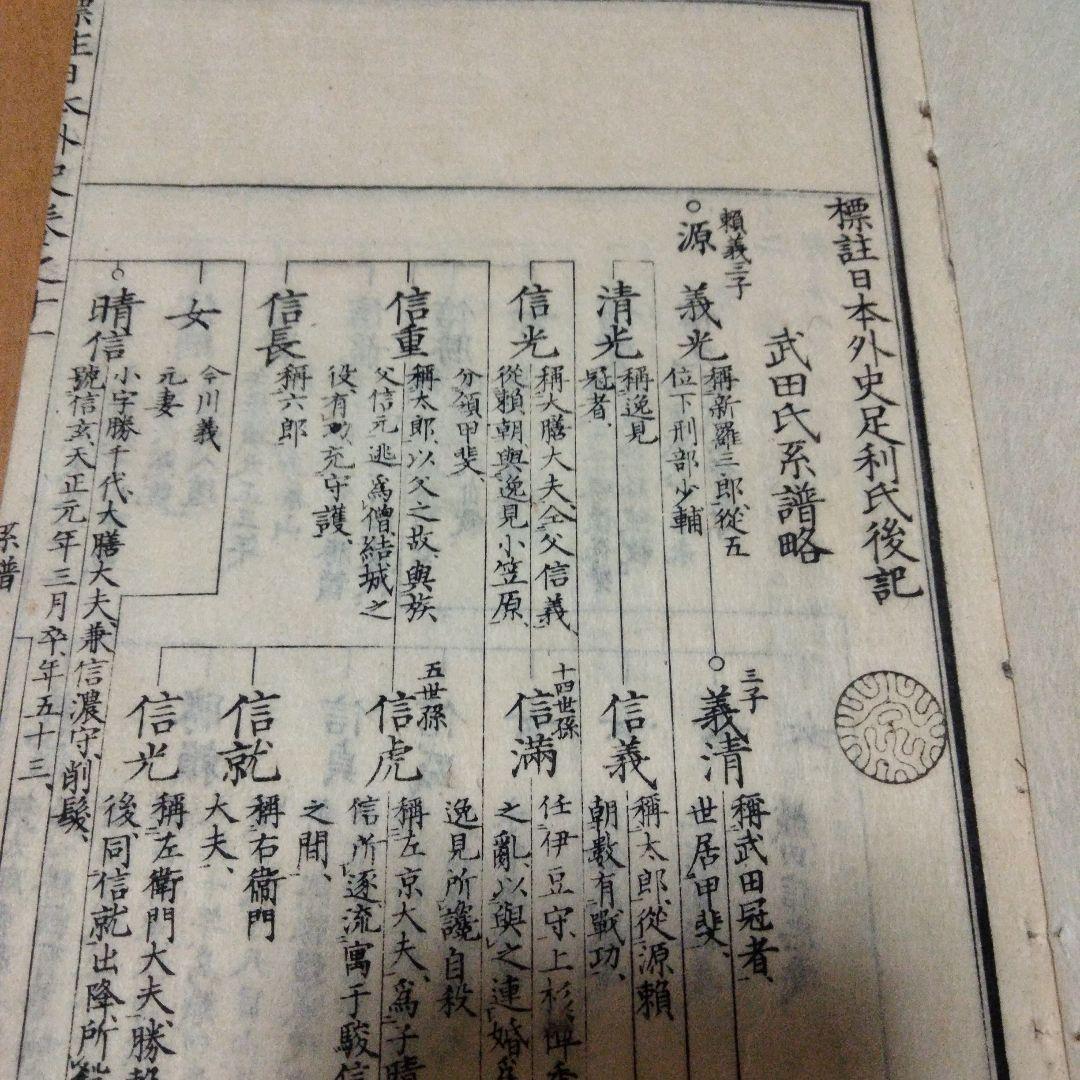 標註日本外史足利氏後記
武田氏系譜略
賴義三子
源義光
稱新羅三郎、從五
位下刑部少輔
三子
義清
稱武田冠者、
世居甲斐、
清光
稱逸見
冠者、
信義
稱太郎、從源賴
朝數有戰功、
信光
稱大膳大夫、仝父信義、
從賴朝與逸見小笠原、
分領甲斐、
十四世孫
信滿
任伊豆守、上杉禪秀
之亂、以與之連婚
逸見所讒自殺
信重
稱太郎、以父之故、與族
父信元逃爲僧、結城之
役、有功、充守護、
五世孫
信虎
稱左京大夫、爲子晴
信所逐、流寓于駿
之間、
信長
稱六郎
信就
稱右衞門
大夫、
信光
稱左衞門大夫、勝
後、同信就出降、所
女
今川義
元妻
晴信
小字勝千代、大膳大夫、兼信濃守、削髮、
號信玄、天正元年三月卒、年五十三、
標註日本外史卷之十一
系譜